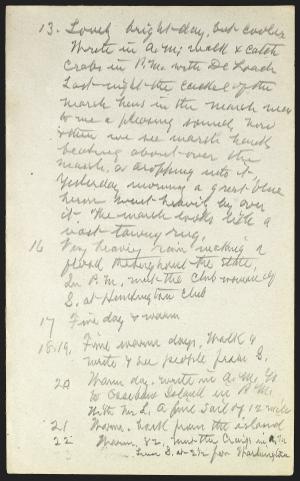 13. Lovely bright day, but cooler
Write in A.M; walk & catch
Crabs in P.M. with De Loach
Last night the cackle of the
marsh hens in the marsh near
to me a pleasing sound, now
& then we see marsh hawk
beating about over the
marsh, or dropping into it,
Yesterday morning a great blue
heron went heavily by over
it. The marsh looks like a
vast tawny rug,
16 Very heavy rain making a
flood throughout the State,
In P.M. met the Club women of
S. at Huntington Club
17 Fine day & warm
18.19, Fine warm days, Walk &
write & see people from S.
20 Warm day, write in A.M. Go
to Island in P.M.
With Mr L. A fine sail of 12 miles
21 Warm. back from the island
22 Warm, 82, met the Craigs in
Leave S. at 2½ for Washington